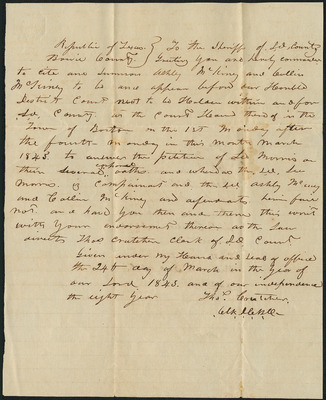 Republic of Texas } To the Sheriff of sd County
Bowie County } Greeting you are hereby commanded
to cite and summon Ashly McKiney and Collin
McKiney to be and appear before our Honble
District Court next to be Holden within and for
sd County, at the Court House thereof in the
Town of Boston on the 1st Monday after
the fourth Monday in this month March
1843. to answer the petition of
their several corporal oaths. and whereas the sd
Morris is Complainant and the sd Ashly McKiney
and Collin McKiney are defendants herin fail
not. and have you then and there this writ
with your endorsement thereon as the Law
directs Thos Crutcher Clerk of sd Court
Given under my Hand and seal of office
the 24th day of March in the year of
our Lord 1843. and of our independence
the eight year Thos. Crutcher